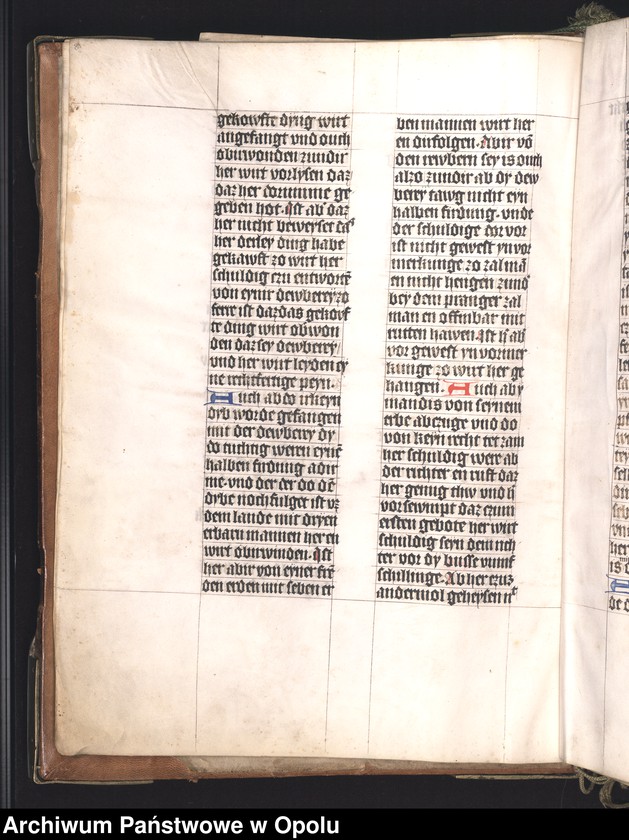 gekowfte dyng wirt
angefangt vnd ouch
obirwonden zundir
her wirt vorlysen daz
daz her dorumme ge
geben hot. Ist ab daz
her nicht beweyset da
her deſey ding habe
gekawft zo wirt her
schuldig czu entwort
von eynir dewbereyzo
ferre ist dazdas gekowf
te ding wirt obirwon
den daz sey dewberey
vnd her wirt leyden ey
ne rechtfertige peyn.
Auch ab do irkeyn
dyb worde gefangen
mit der dewberey dy
do tuchtig weren eyne
halben firdung adir
me vnd der der do de
dybe nochfulget ist vz
dem lande mit dryen
erbarn mannen her en
wirt obirwinden. Ist
her abir von eyner fre
den erden mit seben er
ben mannen wirt her
en dirfolgen. Abir vō
den rewbern sey is ouch
alzo zundir ab dy dew
berey tawg nicht eyn
halben firdung. vnde
der schuldige dor vor
ist nicht gewest yn vor
merkunge zo zal mā
en nicht hengen zund
bey dem pranger zal
man en offinbar mit
rutten hawen. Ist h ab
vor gewest yn vormer
kunge zo wirt her ge
hangen. Auch ab y
mandis von seynem
erbe abczuge vnd do
von keyn recht tet zam
her schuldig wer ab
der richter en ruft daz
her genug thw vnd h
vorsewmpt daz czum
ersten gebote her wirt
schuldig seyn dem rich
ter vor dy busse vumf
schillinge. Ab her czuz
andermol geheysen n
Archiwum Państwowe w Opolu